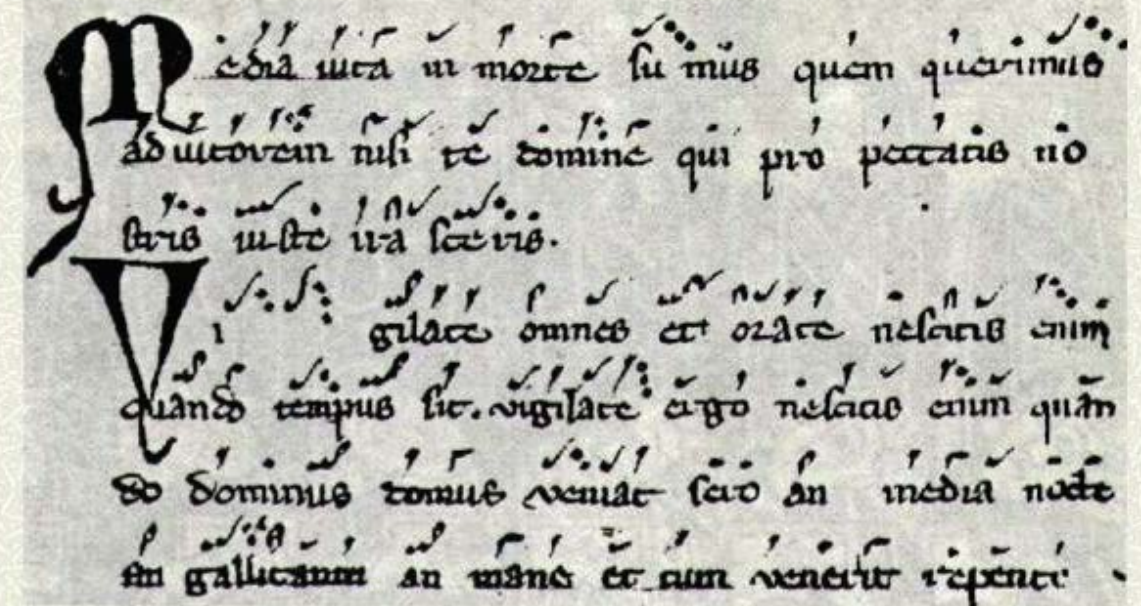 Media uita in morte sumus quem querimus
adiutorem nisi te domine qui pro peccatis no
stris iuste irasceris.
Vi gilate omnes et orate nescitis enim
quando tempus sit. vigilate ergo nescitis enim quan
do dominus domus veniat sero an media nocte
an an mane et cum venerit repente